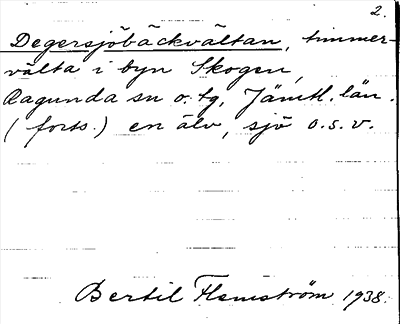 2.
Degersjöbäckvältan, timmer-
välta i byn Skogen,
Ragunda sn o. tg, Jämtl. län.
(forts.) en älv, sjö o.s.v.
Bertil Flemström 1938.